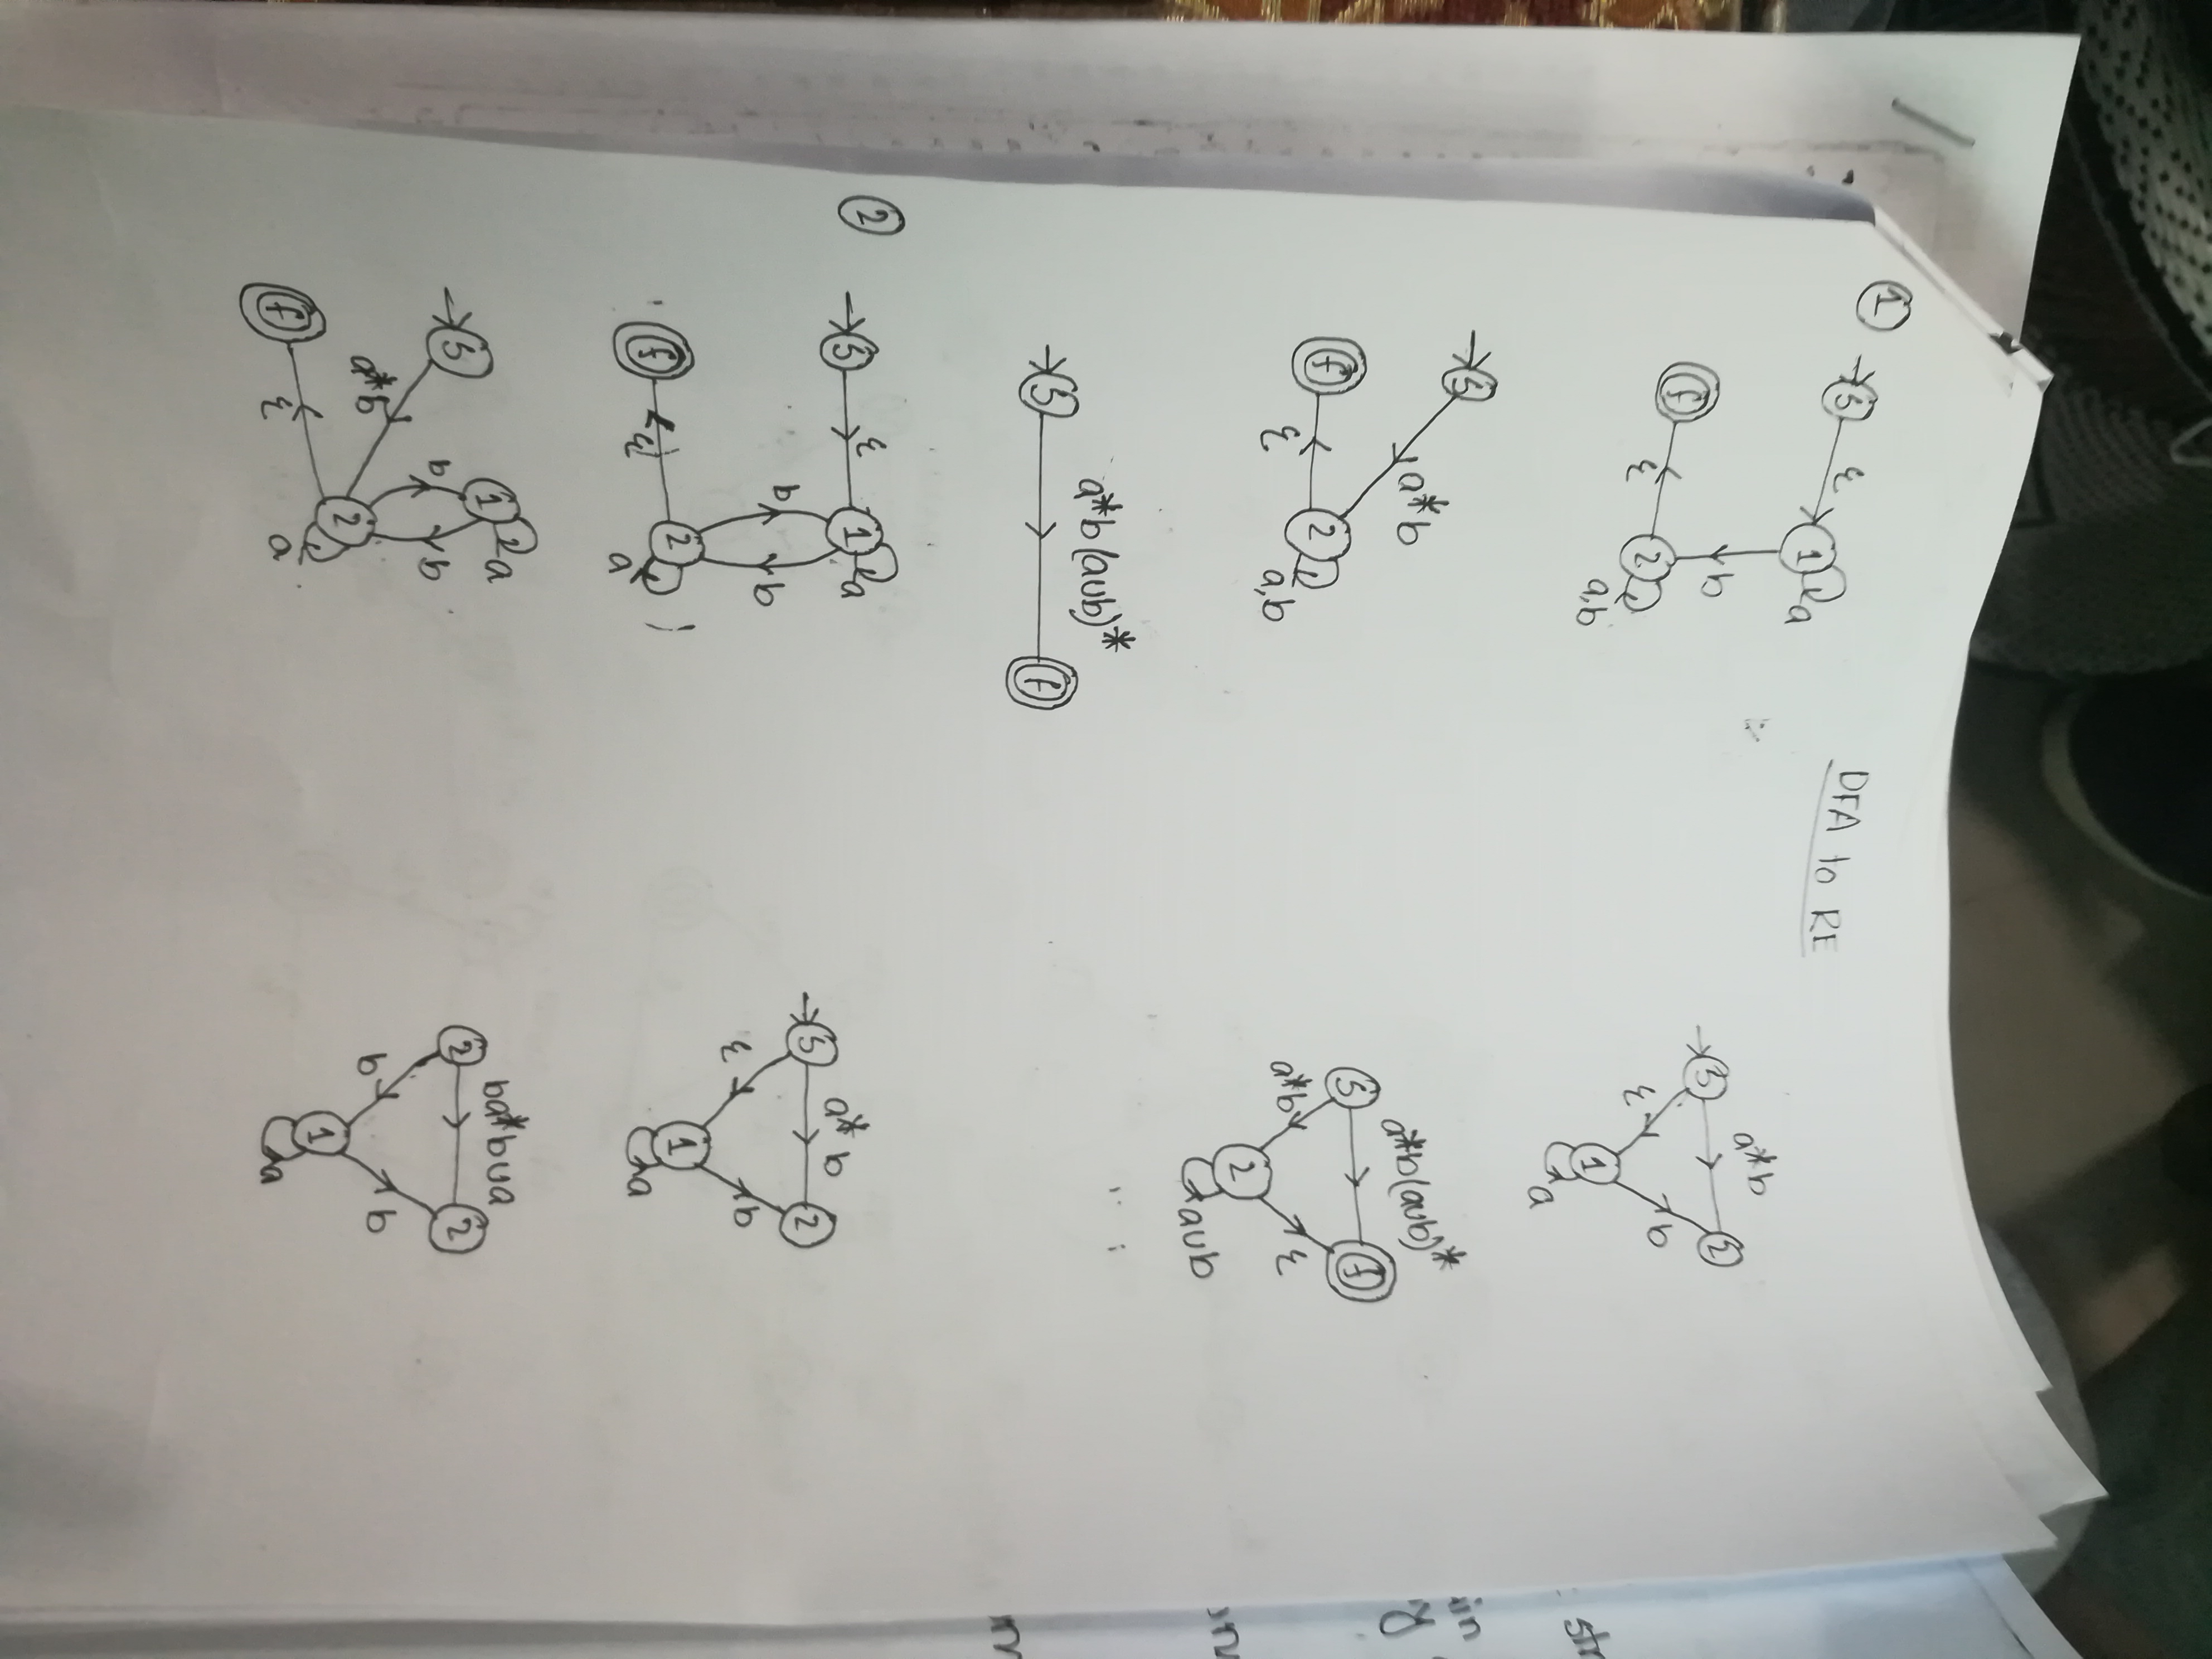 1
DFA to RE
S ε 1 a
b
f ε 2
a,b
a*b
S 2
ε b
1
a
S
a*b
f 2
ε a,b
a*b(a∪b)*
S f
a*b ε
2
a∪b
a*b(a∪b)*
S f
2
S ε 1 a
b b
f ε 2
a
a* b
S 2
ε b
1
a
1 a
S
b b
a*b
2
f ε a
ba*b∪a
2 2
b b
1
a
str
in
y